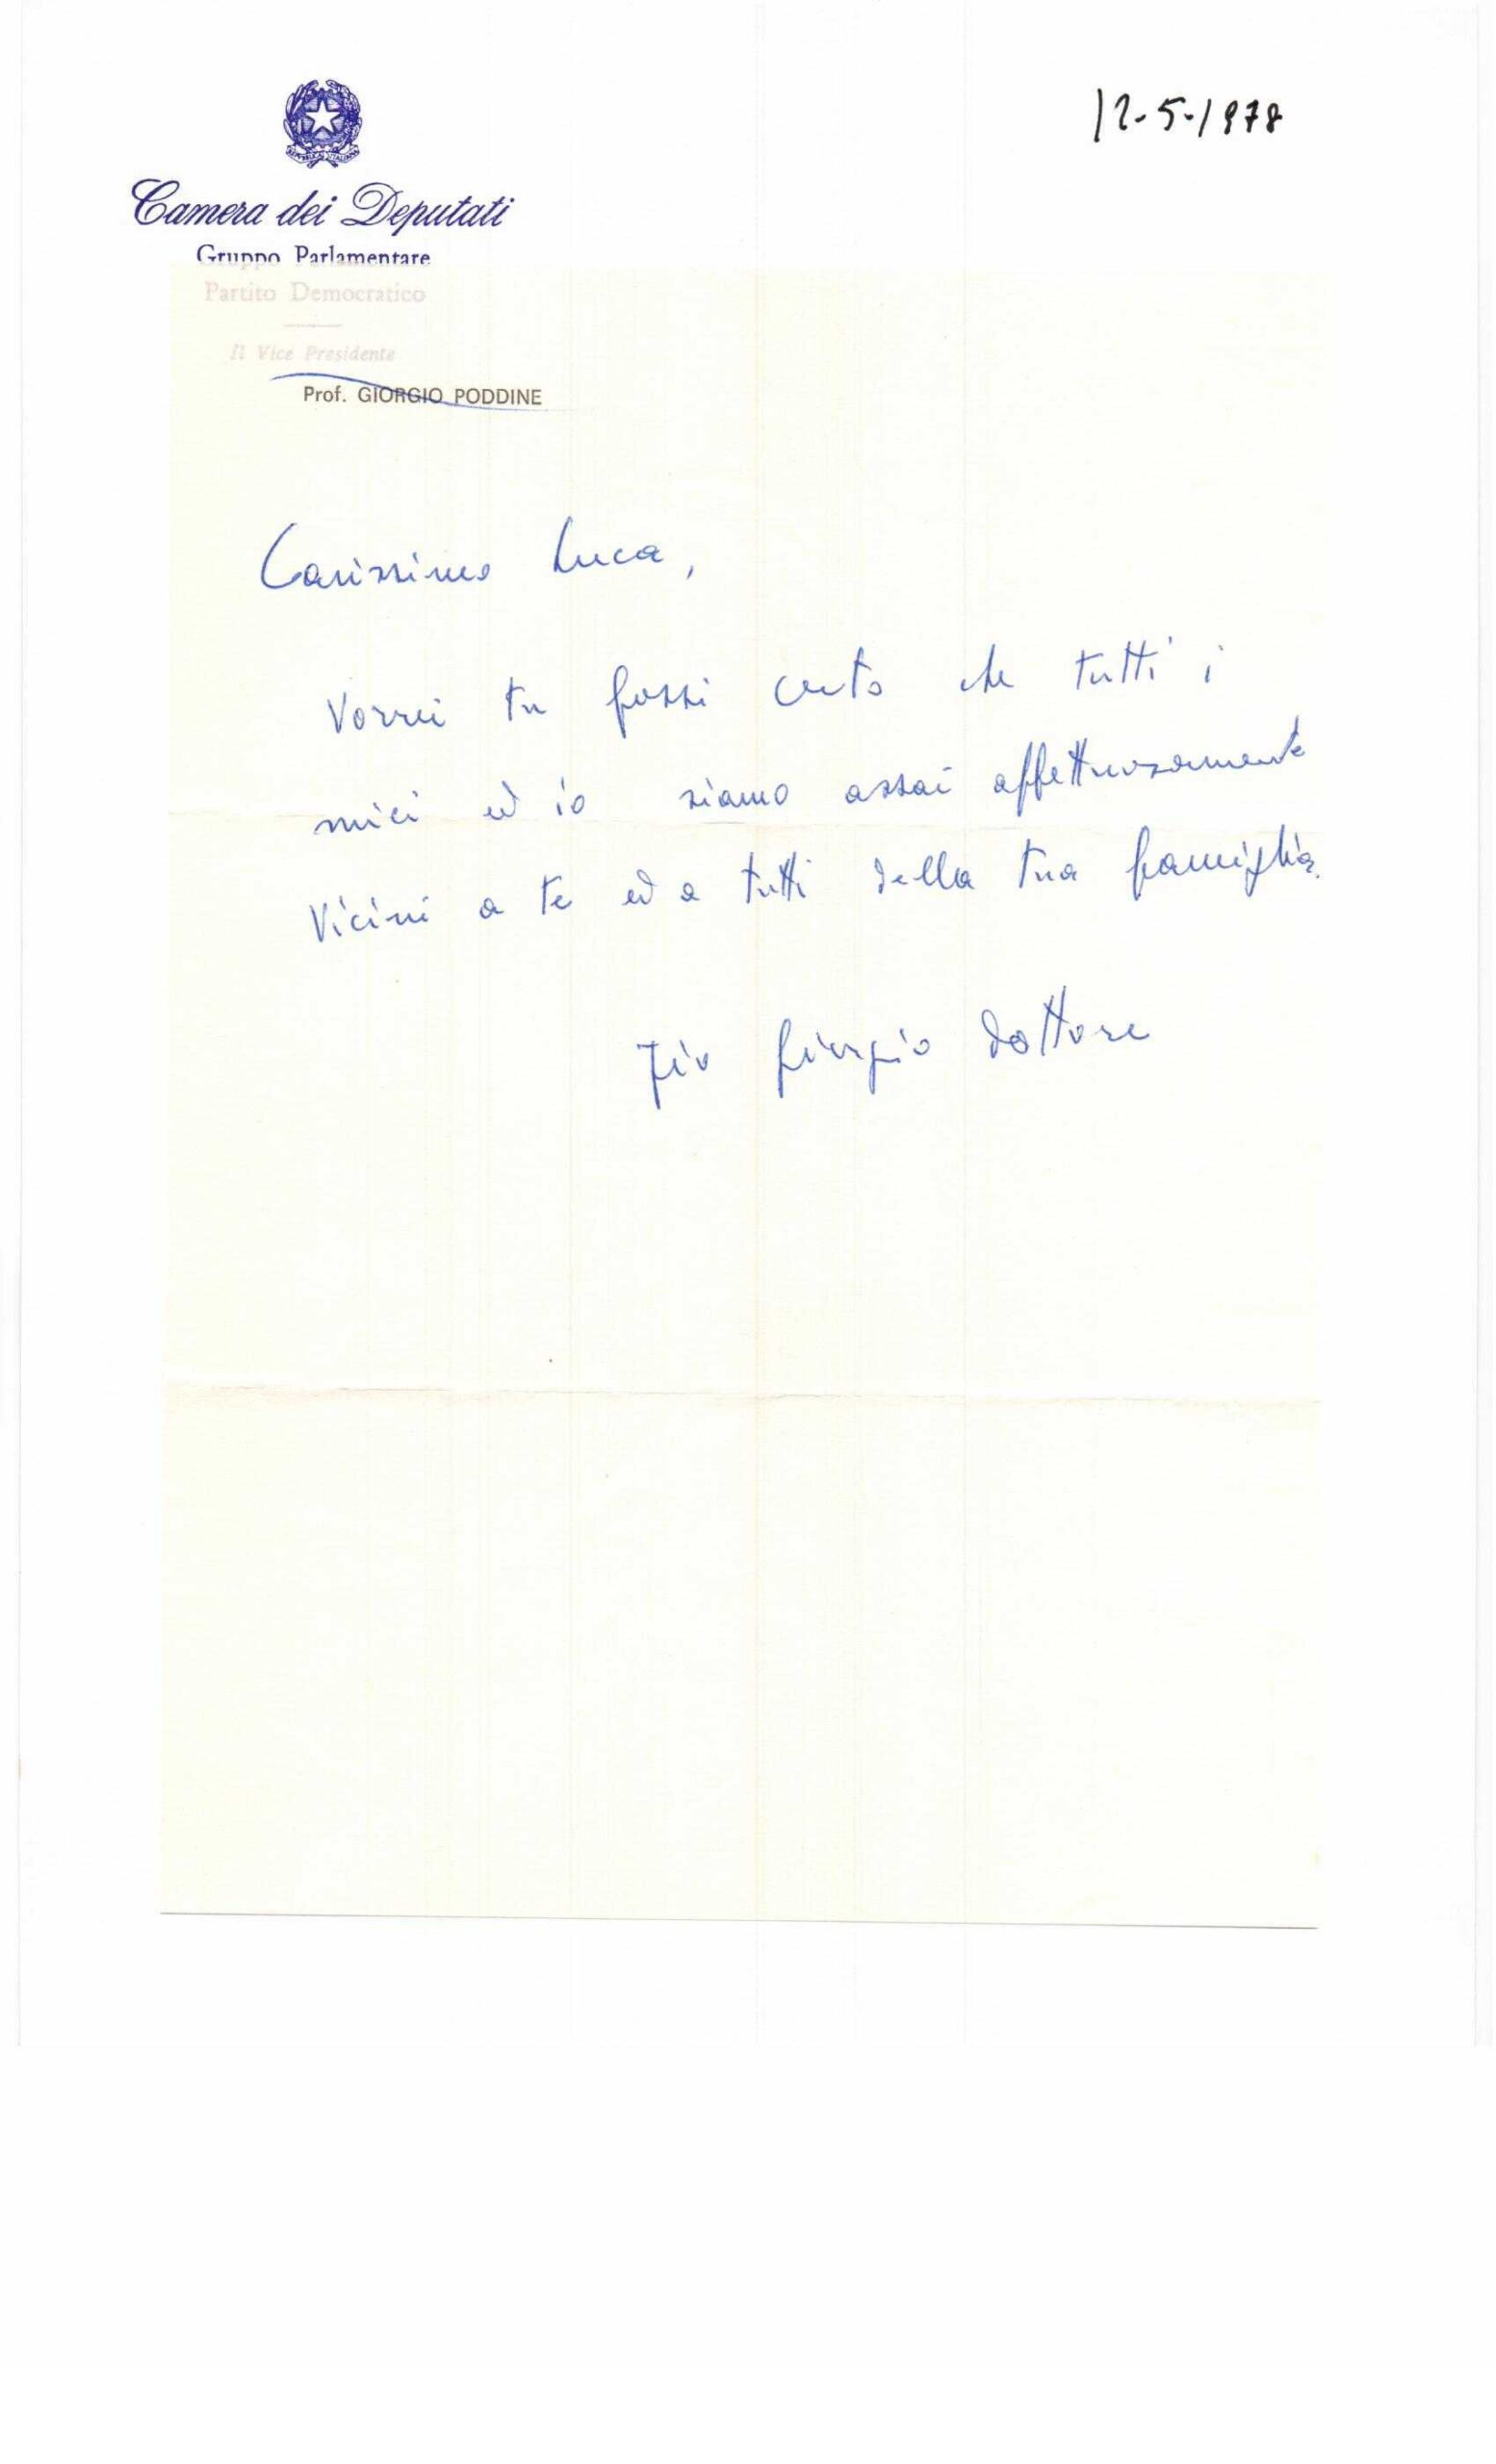 12-5-1978
REPVBBLICA ITALIANA
Camera dei Deputati
Gruppo Parlamentare
Partito Democratico
Il Vice Presidente
Prof. GIORGIO PODDINE
Carissimo Luca,
Vorrei tu fossi certo che tutti i
miei ed io siamo assai affettuosamente
vicini a te ed a tutti della tua famiglia.
Zio Giorgio Dottore